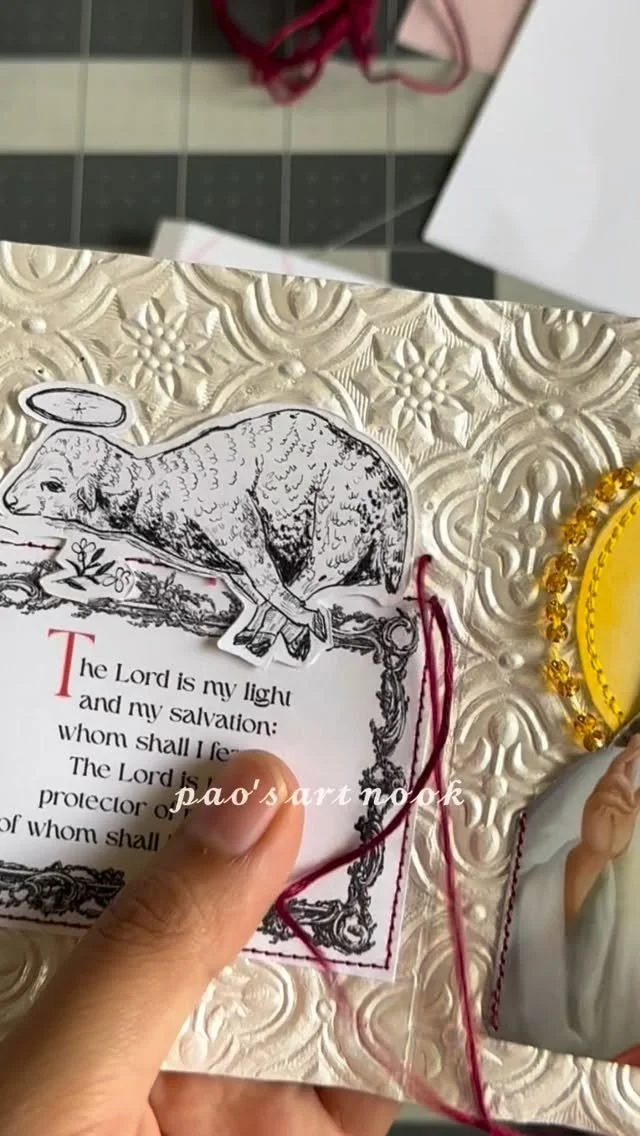 The Lord is my light
and my salvation:
whom shall I
The Lord is
protector of
of whom shall
pao's art nook